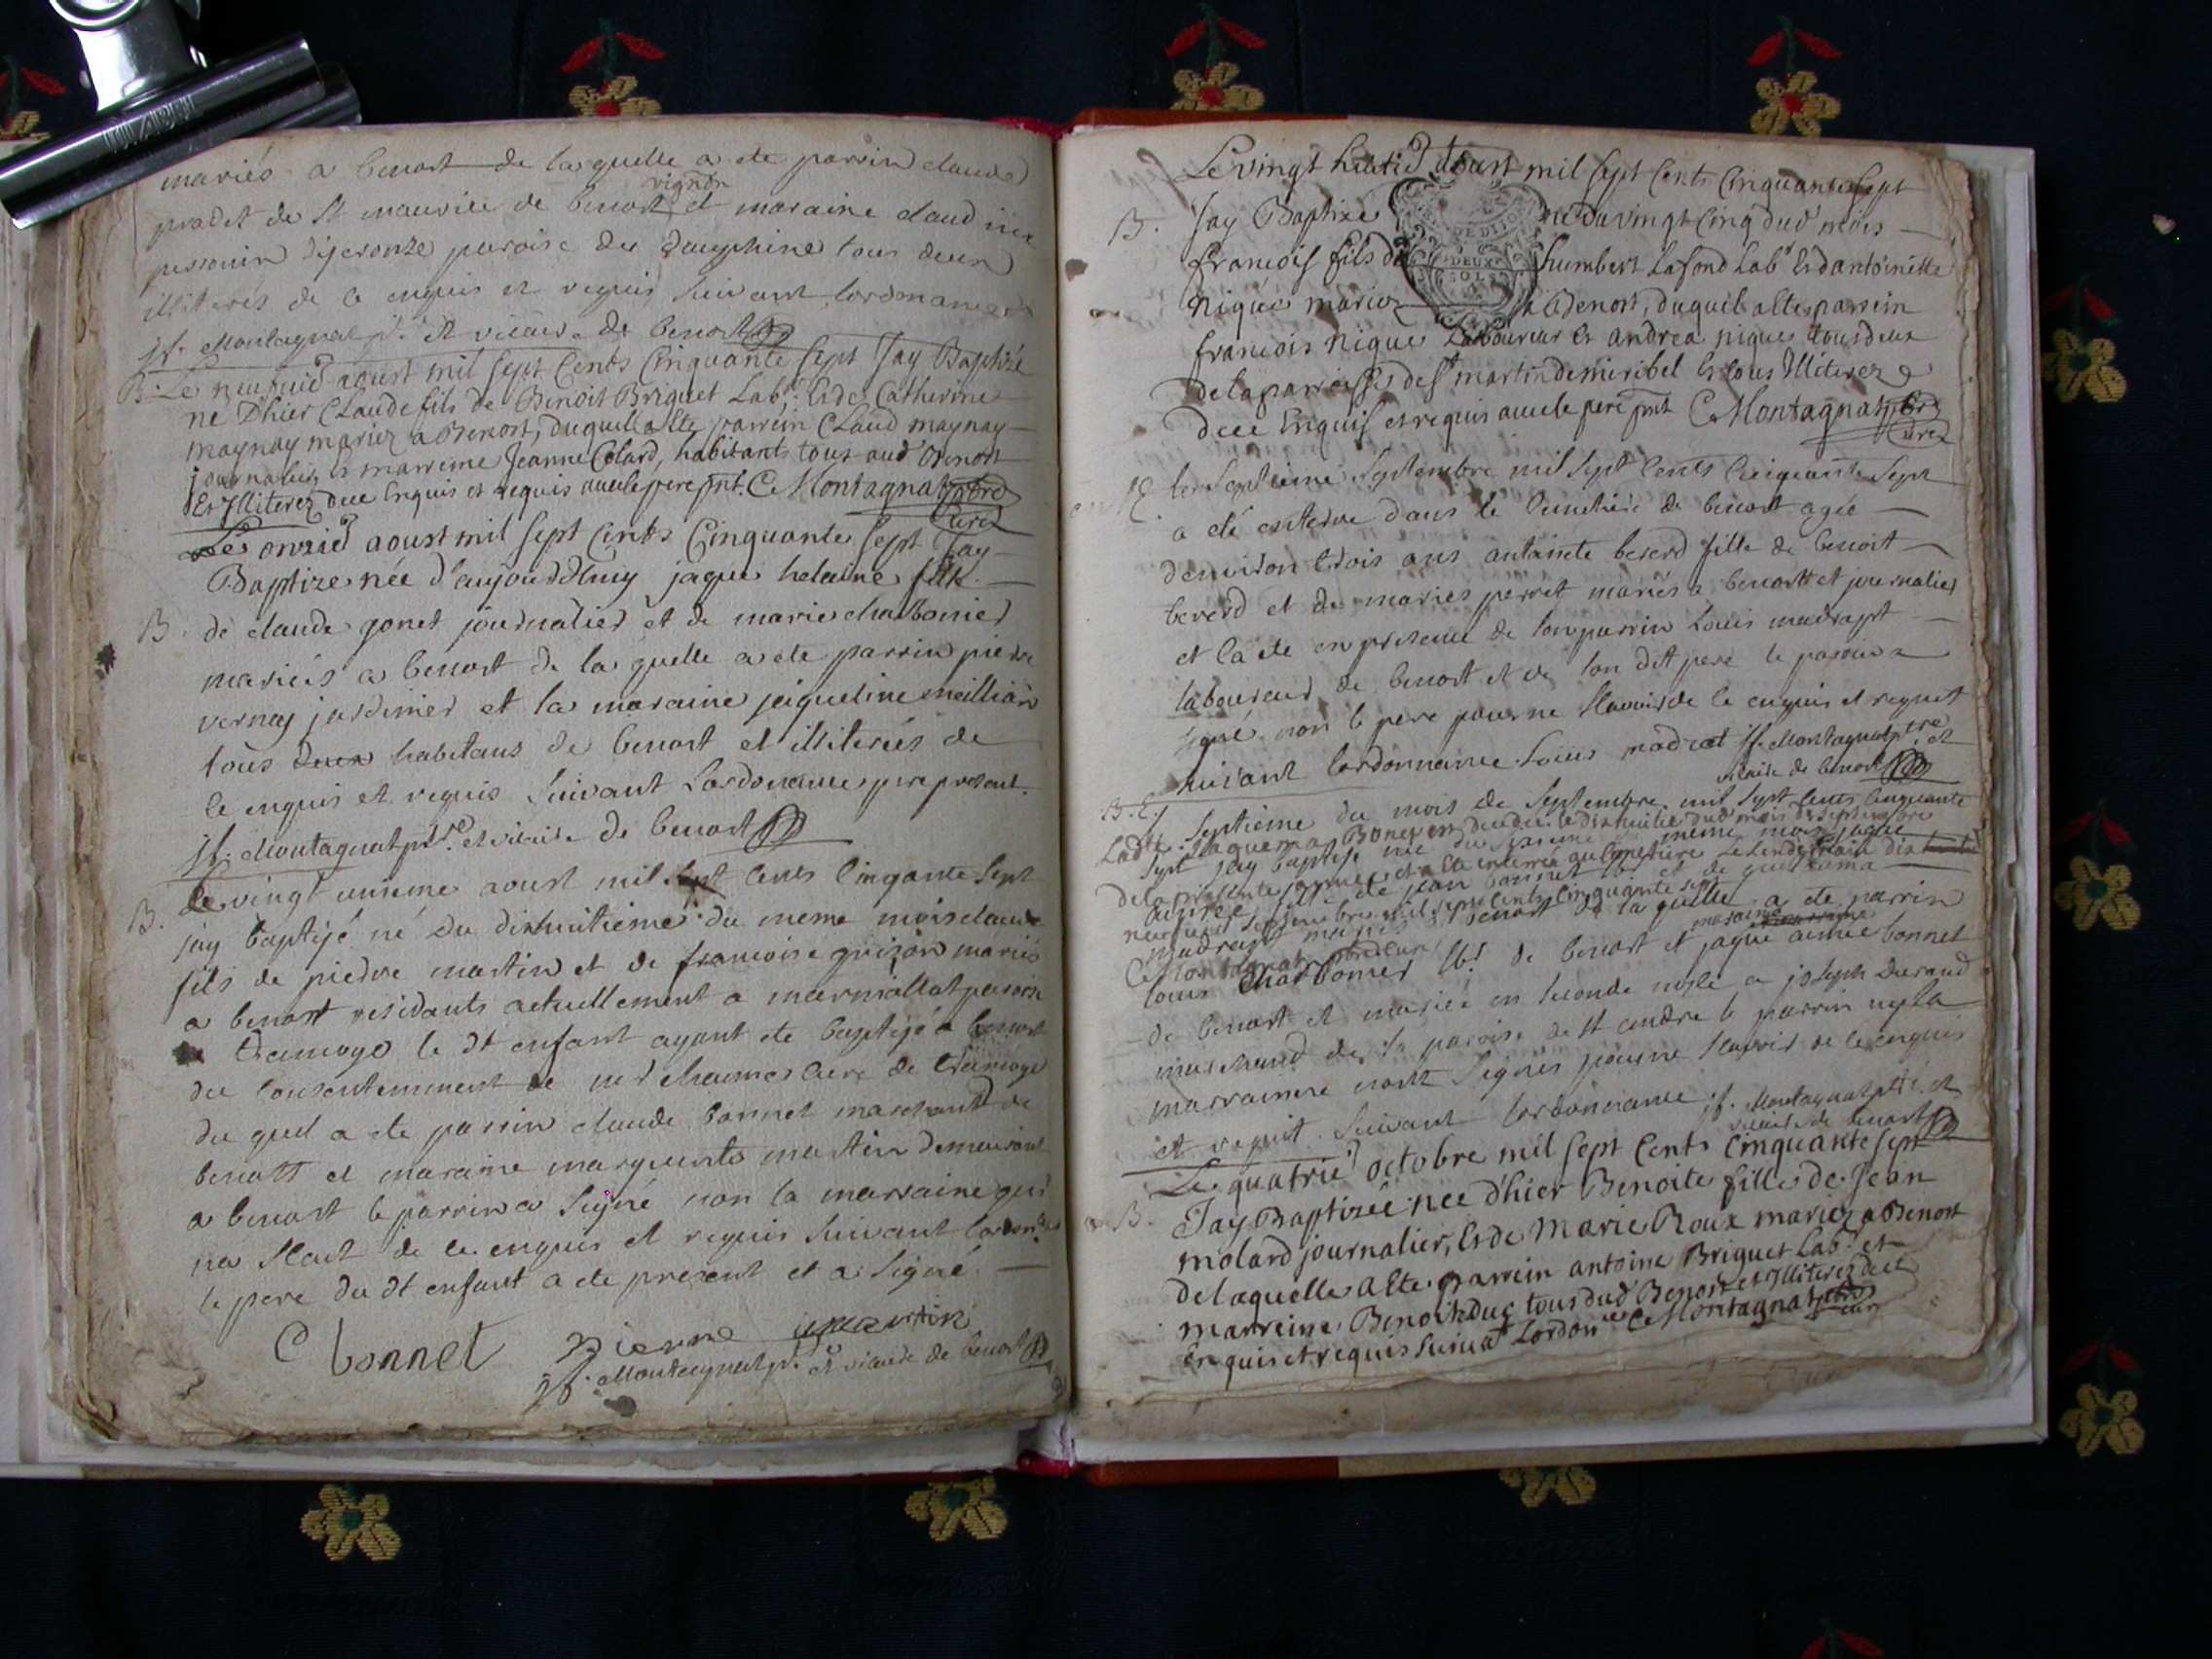 mariés a benost de la quelle a ete parrin claude
pradet de st maurice de benost vignon et maraine claudine
paroise du dauphine tous deux
illiterés de ce enquis et requis suivant lordonance
jf. Montagnat p. et vicaire de benost
B. Le neufvie aoust mil sept Cents Cinquante sept Jay Baptizé
né D'hier Claude fils de Benoit Briguet Labr. Et de Catherine
maynay mariez a Benost, duquel a Ete parrein Claud maynay
journalier, Et marreine Jeanne Colard, habitants tous aud Benost
Et Illiterez dece Enquis et requis avec le pere pnt. C. Montagnat pbre
Curé
Le onzie aoust mil sept Cents Cinquante sept Jay
Baptize née d'aujourd'huy jaque helaine fille
B. de claude gonet journalier et de marie charbonier
mariés a benost de la quelle a ete parrin piedre
vernay jardinier et la maraine jaqueline meillian
tous deux habitans de benost et illiterés de
ce enquis et requis suivant Lordonance pere present.
jf. Montagnat ptre. et vicaire de benost
B. Le vingt unieme aoust mil sept cents cinqante sept
jay baptisé né du dixhuitieme du meme mois claude
fils de piedre martin et de francoise grizon mariés
a benost residants actuellement a marmallat paroise
de tramoye le dt enfant ayant ete baptisé a benost
du consentemment de curé de tramoye
du quel a ete parrin claude bonnet marchant de
benost et maraine marguerite martin demeurant
a benost le parrin a signé non la marraine qui
na sceut de ce enquis et requis suivant lordon.ce
le pere du dt enfant a ete present et a signé
C bonnet pierre martin
jf. Montagnat p. et vicaire de benost
Le vingt huitie aoust mil sept Cents Cinquante sept
B. Jay Baptize né du vingt Cinq dud mois
DE DIJO
DEUX
SOLS
francois fils de humbert Lafond Labr Et d antoinette
nique mariez a Benost, duquel a Ete parrein
francois nique Laboureur Et andrea nique tous deux
de la parroisse de st martin de miribel Et tous Illiterez
dece Enquis et requis avec le pere pnt C. Montagnat pbre
Curé
E. le septieme septembre mil sept cents cinquante sept
a eté enterre dans le cimetiere de benost agée
d'environ trois ans antainete beverd fille de benoit
beverd et de maries perret mariés a benost et journalier
et la ete en presence de son parrin Louis madrapt
laboureur de benost et de son dit pere le parrin a
signé non le pere pour ne scavoir de ce enquis et requit
suivant lordonnance Louis madrat jf. Montagnat ptre et
vicaire de benost
B. E. septieme du mois de septembre mil sept cents cinquante
Ladte. Bonet en decedée le dixhuitie dud mois de septembre
sept jay baptisé née du meme mois jaque
de la presente année et a ete enterrée au Cimetiere Le Lendemain dix
aimée fille de jean bonnet lbr et de guillema
neufvie septembre mil sept Cents Cinquante sept
madrapt mariés a benost de la quelle a ete parrin
C. Montagnat pbre Curé
maraine
louis charbonier lbr de benost et jaque aimée bonnet
de benost et mariée en seconde nosse a joseph durand
marchand de la paroise de st andre le parrin ny la
marrainne nont signés pour ne scavoir de ce enquis
et requit suivant lordonnance jf. Montagnat ptre. et
vicaire de benost
Le quatrie octobre mil sept Cents Cinquante sept
B. Jay Baptizée née d'hier Benoite fille de Jean
molard journalier, Et de Marie Roux mariez a Benost
de laquelle a Ete parrein antoine Briguet Labr. et
marreine Benoite duc tous dud Benost et Illiterez dece
Enquis et requis suivat Lordonce C. Montagnat pbre
curé